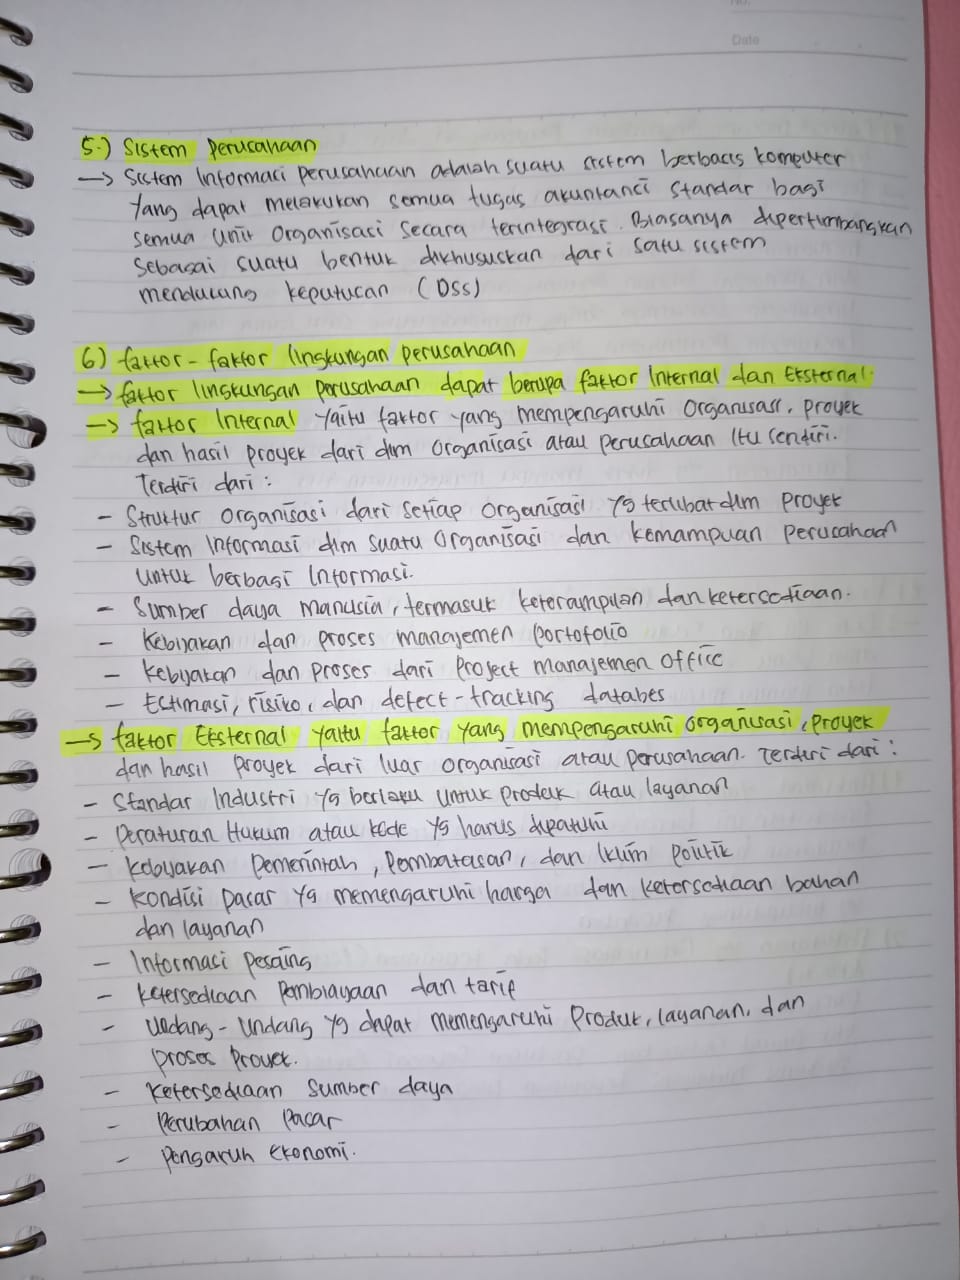 No.
Date
5.) Sistem perusahaan
→ Sistem Informasi perusahaan adalah suatu sistem berbasis komputer
yang dapat melakukan semua tugas akuntansi standar bagi
semua unit organisasi secara terintegrasi. Biasanya dipertimbangkan
sebagai suatu bentuk dikhususkan dari satu sistem
mendukung keputusan (DSS)
6) faktor-faktor lingkungan perusahaan
→ faktor lingkungan perusahaan dapat berupa faktor Internal dan Eksternal.
→ faktor Internal yaitu faktor yang mempengaruhi organisasi, proyek
dan hasil proyek dari dlm organisasi atau perusahaan itu sendiri.
Terdiri dari :
- Struktur organisasi dari setiap organisasi yg terlibat dlm proyek
- Sistem Informasi dlm suatu organisasi dan kemampuan perusahaan
untuk berbagi Informasi.
- Sumber daya manusia, termasuk keterampilan dan ketersediaan.
- Kebijakan dan proses manajemen portofolio
- Kebijakan dan proses dari Project manajemen office
- Estimasi, risiko, dan defect-tracking databes
→ faktor Eksternal yaitu faktor yang mempengaruhi organisasi, proyek
dan hasil proyek dari luar organisasi atau perusahaan. Terdiri dari :
- Standar Industri yg berlaku untuk produk atau layanan
- Peraturan Hukum atau kode yg harus dipatuhi
- Kebijakan pemerintah, pembatasan, dan Iklim politik
- Kondisi pasar yg memengaruhi harga dan ketersediaan bahan
dan layanan
- Informasi pesaing
- Ketersediaan pembiayaan dan tarif
- Undang-undang yg dapat memengaruhi produk, layanan, dan
proses proyek.
- Ketersediaan sumber daya
- Perubahan pasar
- Pengaruh ekonomi.